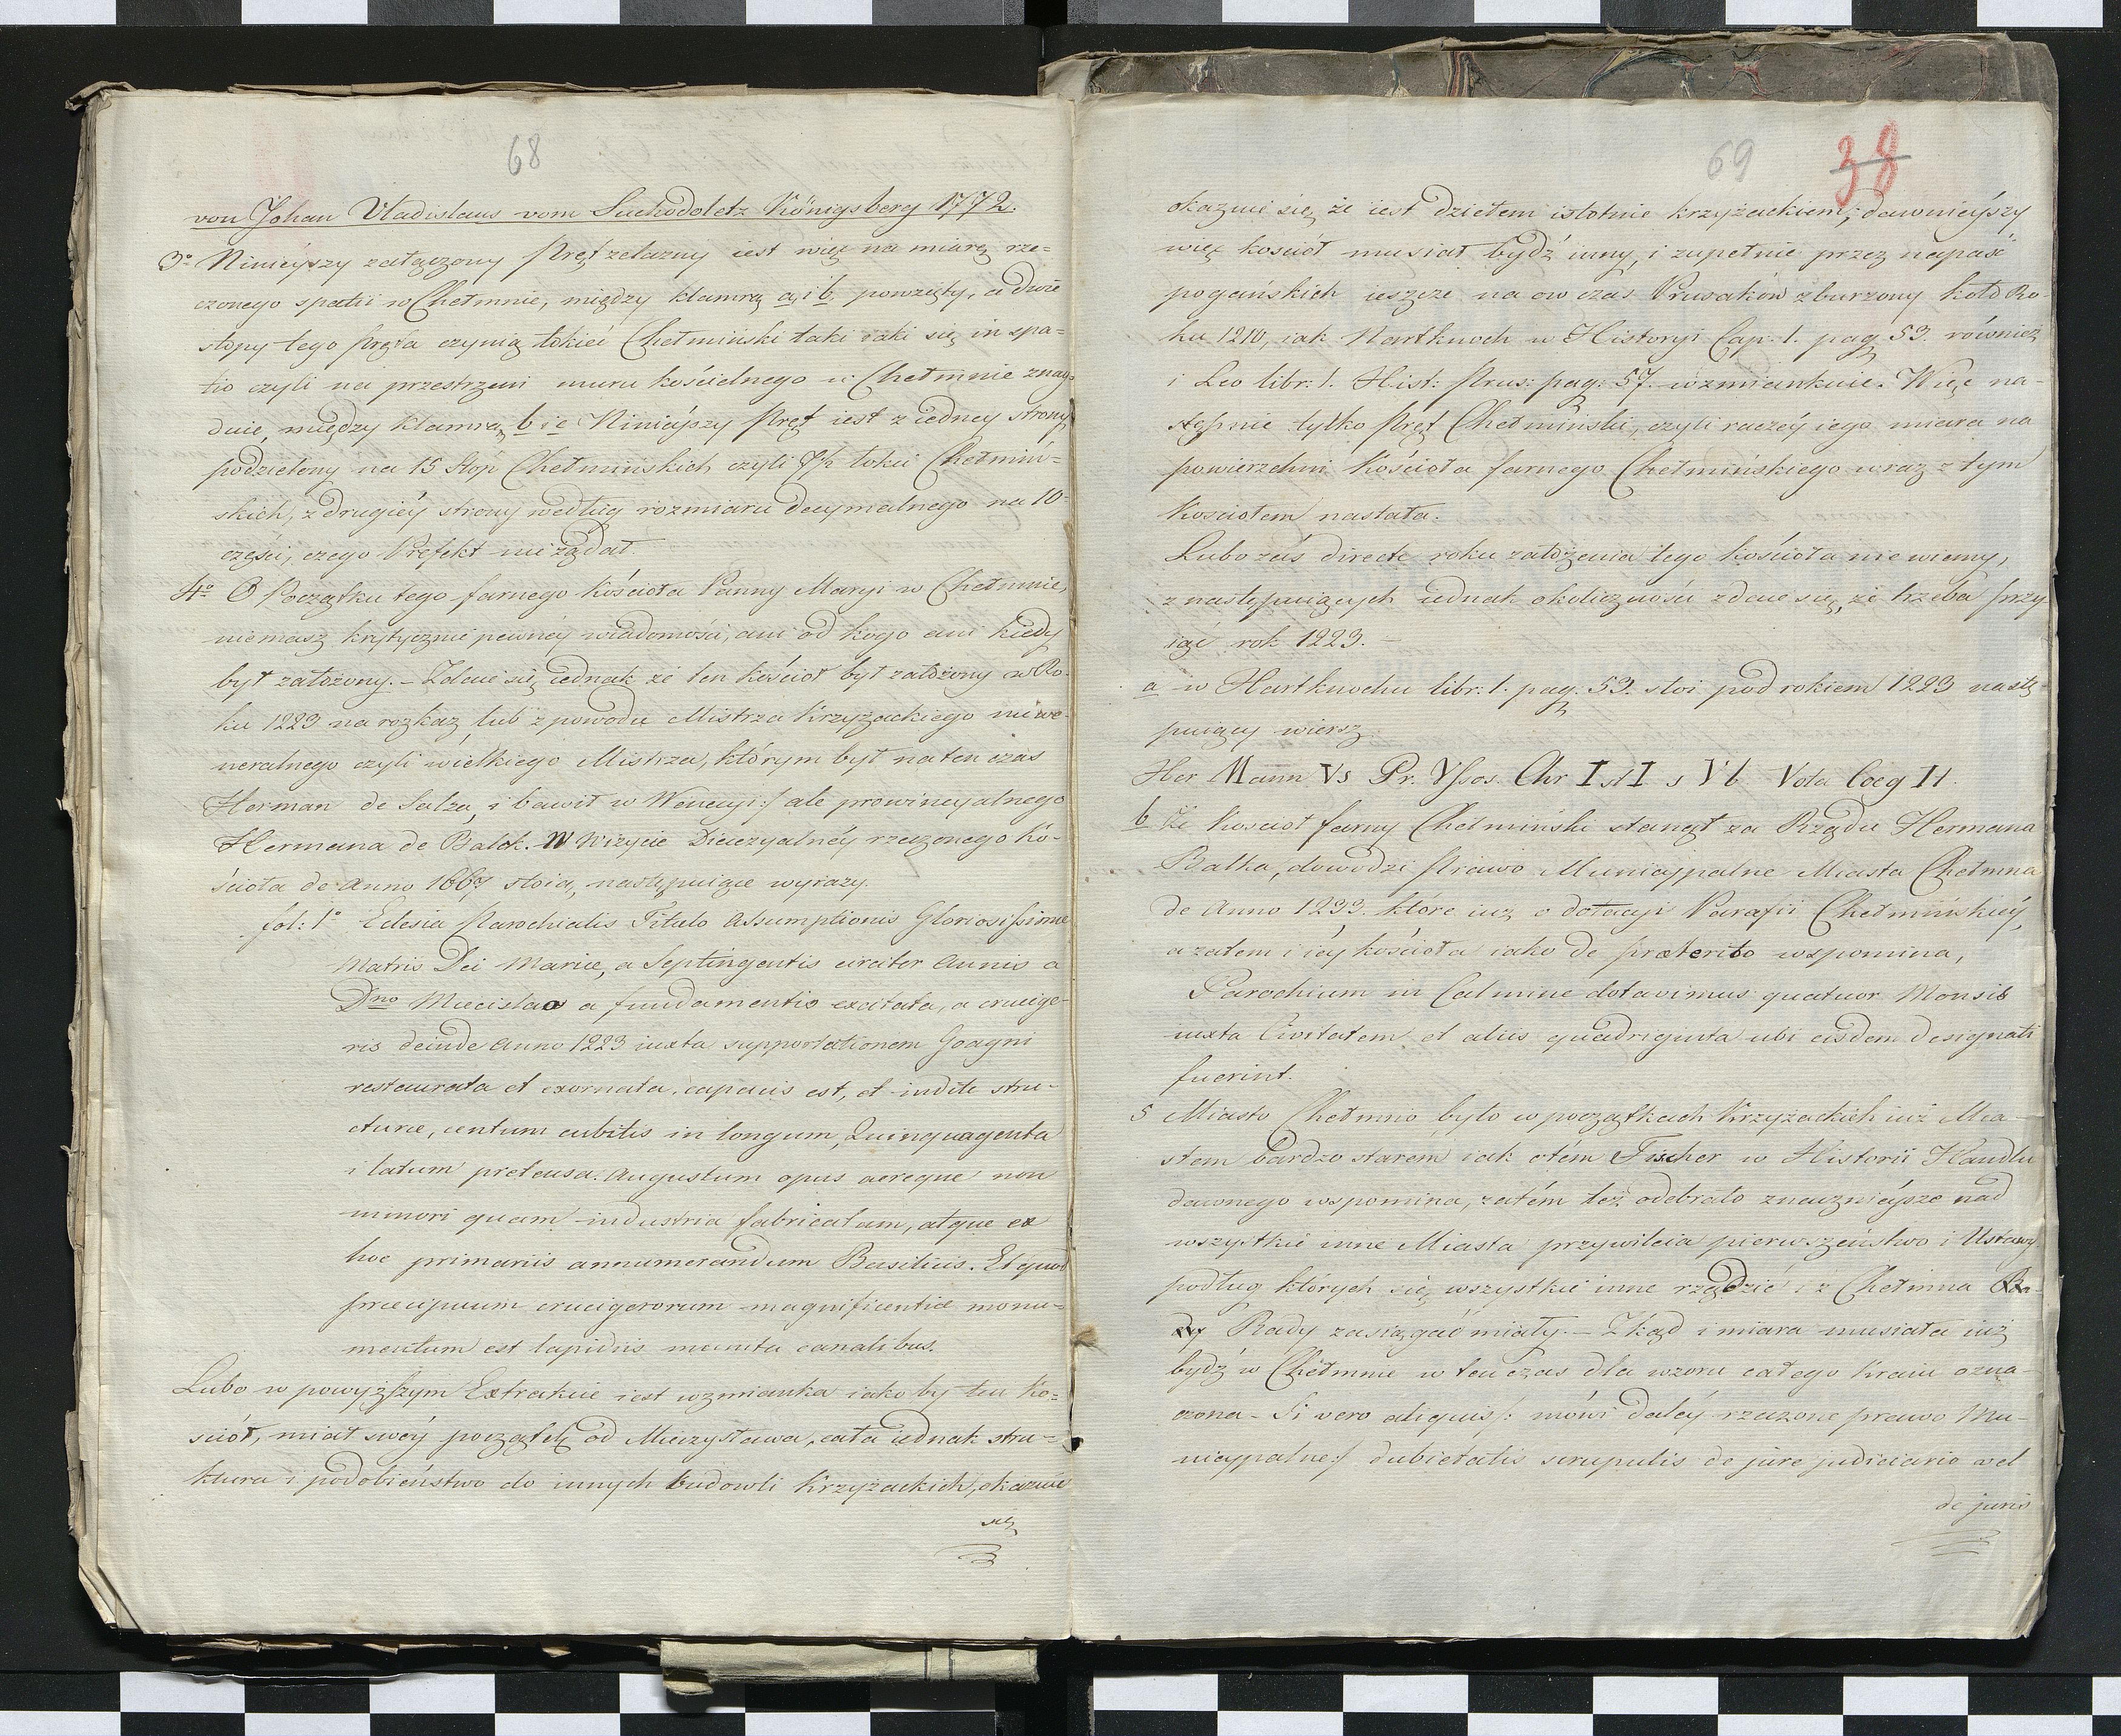 68
von Johan Uladislaus vom Suchodoletz Königsberg 1772.
3o Ninieyszy załączony Pręt żelazny iest więc na miarę rze=
czonego spatii w Chełmnie, między klamrą a, i b, powzięty, a dwie
stopy tego pręta czynią łokieć Chełmiński taki iaki się in spa=
tio czyli na przestrzeni muru kościelnego w Chełmnie znay=
duie, między klamrą b i c Ninieyszy Pręt iest z iedney strony
podzielony na 15 Stop Chełmińskich czyli 7½ łokci Chełmiń=
skich, z drugiéy strony według rozmiaru decymalnego na 10
części, czego Prefekt nie żądał.
4o O Początku tego farnego Kościoła Panny Maryi w Chełmnie,
nie masz krytycznie pewnéy wiadomości, ani od kogo ani kiedy
był założony. – Zdaie się iednak że ten kościoł był założony w Ro=
ku 1223 na rozkaz, lub z powodu Mistrza Krzyżackiego nie ie=
neralnego czyli wielkiego Mistrza, którym był na ten czas
Herman de Salza, i bawił w Wenecyi :/ ale prowincyalnego
Hermana de Balck. W Wizycie Diecezyalnéy rzeczonego Ko=
ścioła de Anno 1667 stoią, następuiące wyrazy.
fol: 1o Eclesia Parochialis Titulo Assumptionis Gloriosissime
Matris Dei Mariæ, a Septingentis circiter Annis a
Dno Miecislao a fundamentis excitata, a crucige=
ris deinde Anno 1223 iuxta supportationem Goagni
restaurata et exornata, capacis est, et indite stru=
cturæ, centum cubitis in longum, Quinquagenta
i latum pretensa. Augustum opus aereque non
minori quam industria fabricatam, atque ex
hoc primariis annumerandum Basilicis. Et quod
præcipuum crucigerorum magnificentiæ monu=
mentum est lapidiis munita canalibus.
Lubo w powyższym Extrakcie iest wzmianka iakoby ten Ko=
sciół, miał swóy początek od Mieczysława, cała iednak stru=
ktura i podobieństwo do innych budowli Krzyżackich, okazuie
się
69 38
okazuie się, że iest dziełem istotnie krzyżackiem; dawnieyszy
więc kościół musiał bydź inny, i zupełnie przez napaść
pogańskich ieszcze na ow czas Prusaków zburzony koło Ro=
ku 1210, iak Hartknoch w Historyi Cap. 1. pag 53. również
i Leo libr: 1. Hist: Prus: pag: 57. wzmiankuie. Więc na=
stępnie tylko Pręt Chełmiński, czyli raczéy iego miara na
powierzchni Kościoła farnego Chełmińskiego wraz z tym
Kosciołem nastała.
Lubo zaś directe roku założenia tego kościoła nie wiemy,
z następuiących iednak okoliczności zdaie się, że trzeba przy
iąć rok 1223. –
a w Hartknochu libr: 1. pag. 53. stoi pod rokiem 1223 nastę
puiący wiersz.
Her Mann Vs Pr. Yssos. Chr I st I s Vb Vota Coeg It.
b Że Kościoł farny Chełmiński stanął za Rządu Hermana
Balka, dowodzi Prawo Municypalne Miasta Chełmna
de Anno 1233. które iuż o dotacyi Parafii Chełmińskiéy,
a zatem i iéy kościoła iako de præterito wspomina,
Parochium in Calmine dotavimus quatuor Monsis
iuxta Civitatem et aliis quadriginta ubi eisdem designati
fuerint.
5 Miasto Chełmno było w początkach Krzyżackich iuż Mia=
stem bardzo starem iak o tém Fischer w Historii Handlu
dawnego wspomina, zatém też odebrało znacznieysze nad
wszystkie inne Miasta przywileia pierwszeństwo i Ustawy
podług których się wszystkie inne rządzić i z Chełmna
Rady zasiągać miały. – Zkąd i miara musiała iuż
bydź w Chełmnie w ten czas dla wzoru całego Kraiu ozna=
czona – Si vero aliquis /: mówi daléy rzeczone prawo Mu=
nicypalne :/ dubietatis scrupulis de jure judiciario vel
de juris